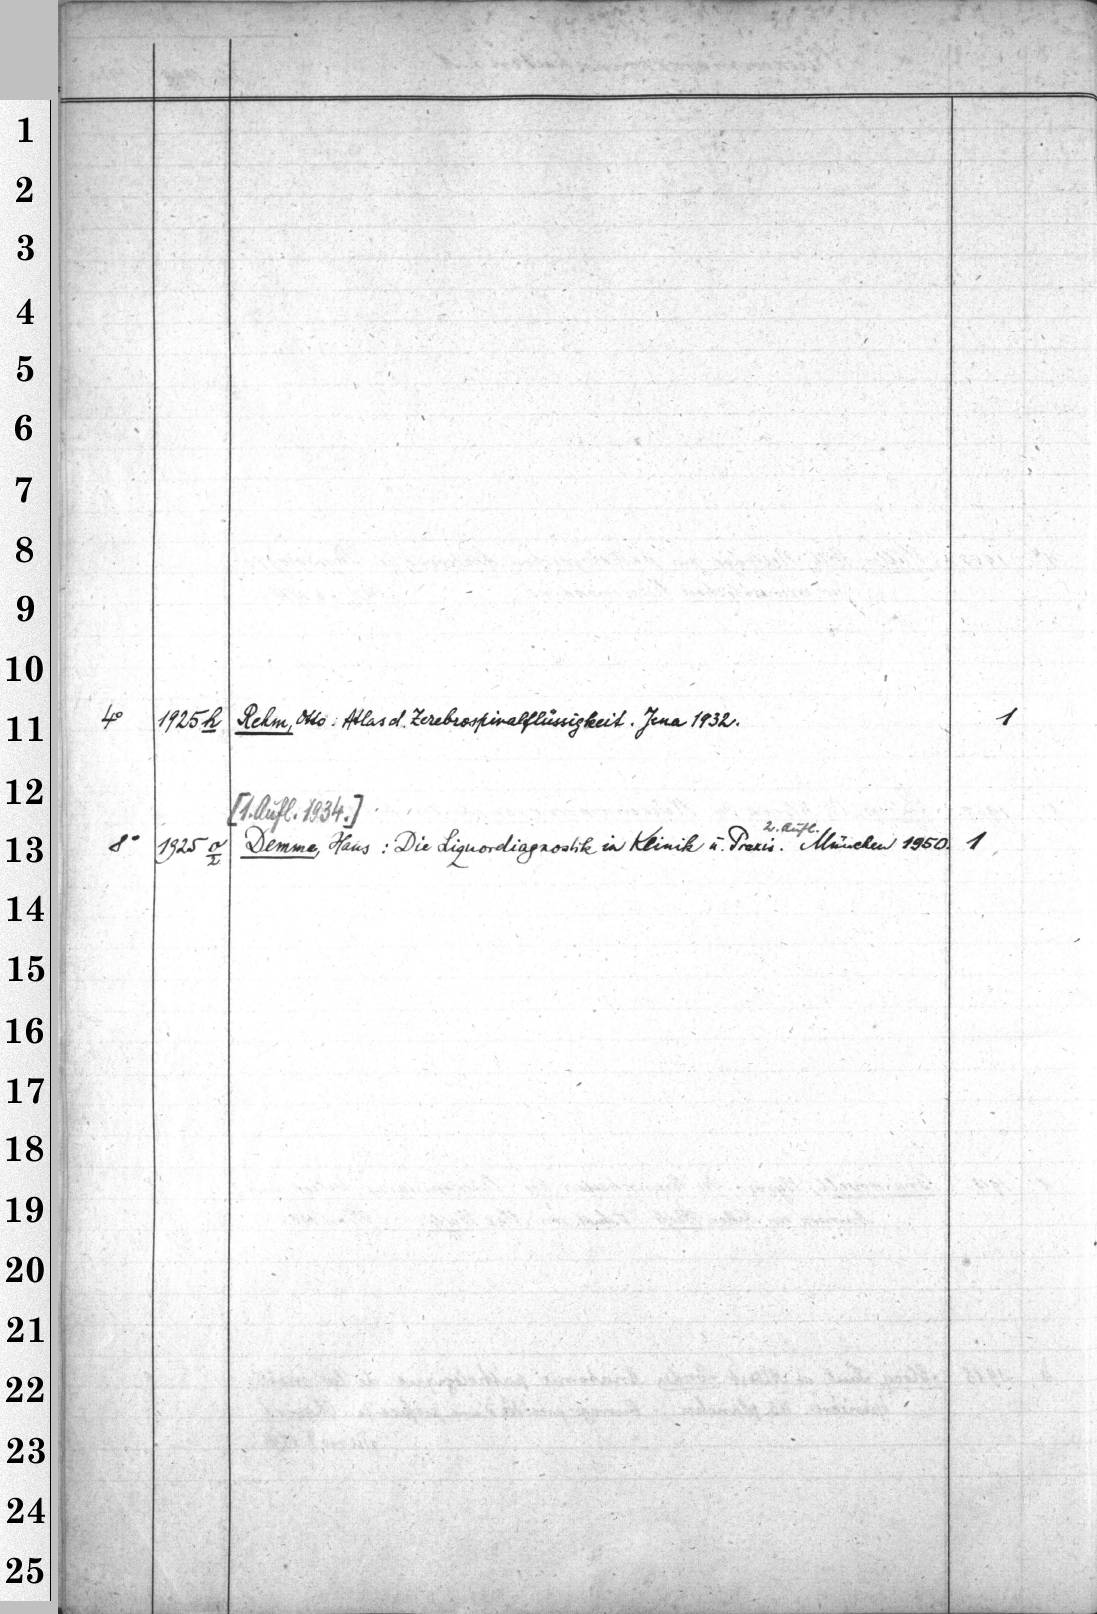 1
2
3
4
5
6
7
8
9
10
11 4° 1925 h Rehm, Otto : Atlas d. Zerebrospinalflüssigkeit. Jena 1932. 1
12
[1. Aufl. 1934.]
2. Aufl.
13 8° 1925 Demme, Hans : Die Liquordiagnostik in Klinik u. Praxis. München 1950. 1
14
15
16
17
18
19
20
21
22
23
24
25